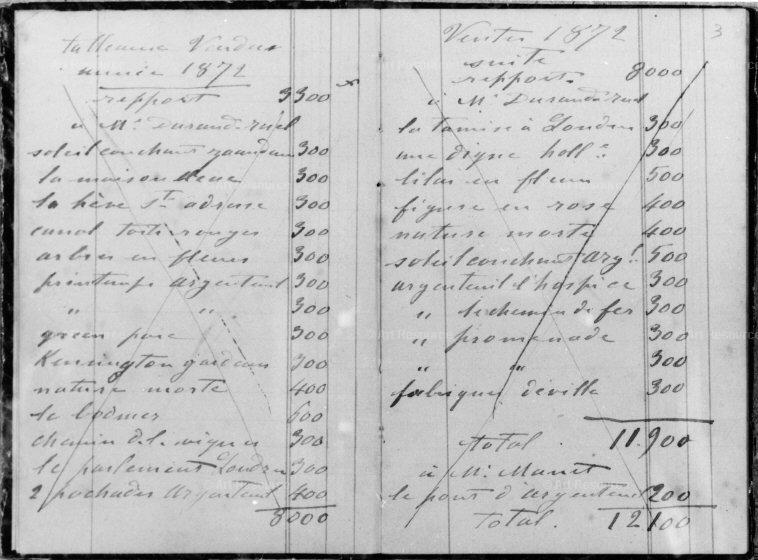 tableaux Vendus
année 1872
repport 3300
à Mr Durand-ruel
soleil couchant zaandam 300
la maison bleue 300
la hève St adresse 300
canal toits rouges 300
arbres en fleurs 300
printemps argenteuil 300
" " 300
green parc 300
Kensington gardens 300
nature morte 400
le bodmer 600
chemin de la vignes 300
le parlement Londres 300
2 pochades Argenteuil 400
8000
Ventes 1872
3
suite
repports 8000
à Mr Durand-ruel
la tamise à Londres 300
une digue holl. 300
lilas en fleurs 500
figure en rose 400
nature morte 400
soleil couchant arg. 500
argenteuil l'hospice 300
" le chemin de fer 300
" promenade 300
" " 300
fabriques déville 300
total. 11.900
à Mr. Manet
le pont d'argenteuil 200
total. 12100
© Art Resource